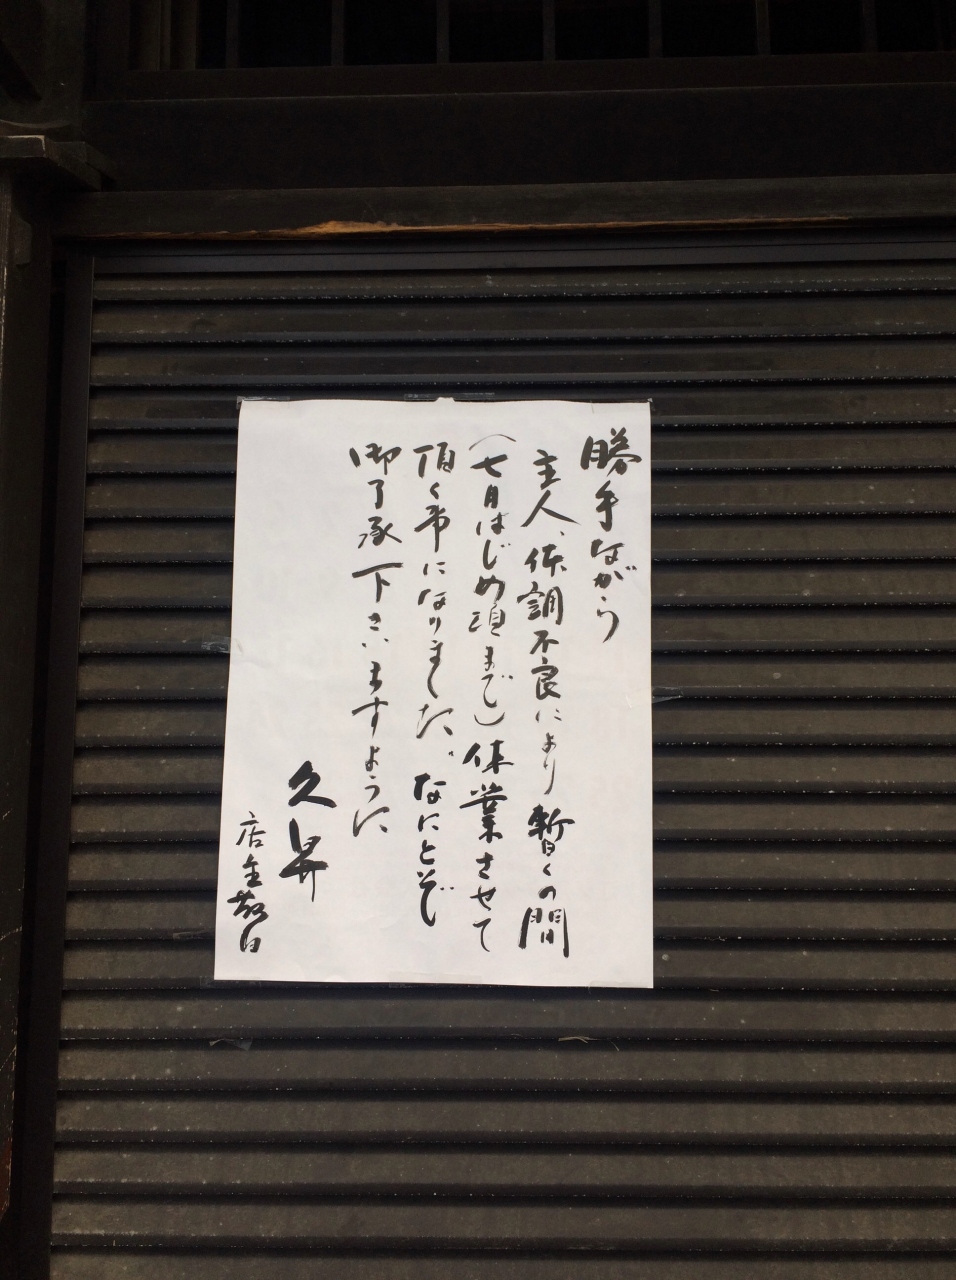 勝手ながら
主人、体調不良により暫くの間
(七月はじめ頃まで)休業させて
頂く事になりました。なにとぞ
御了承下さいますように
久昇
店主敬白